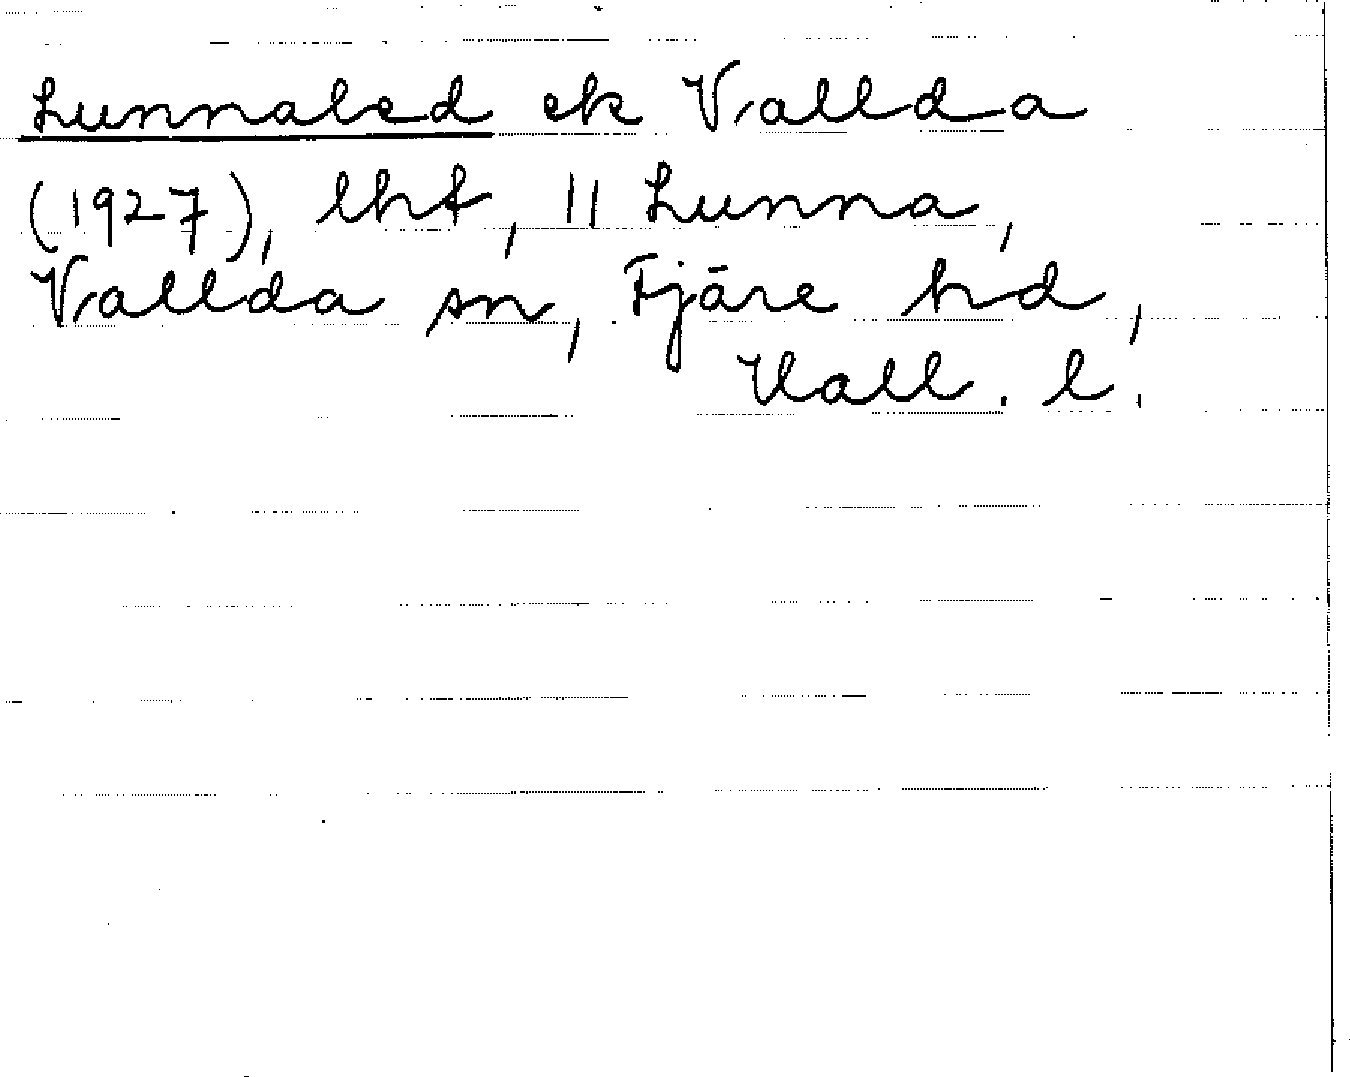 Lunnaled ek Vallda
(1927), lht, || Lunna,
Vallda sn, Fjäre hd,
Hall. l.